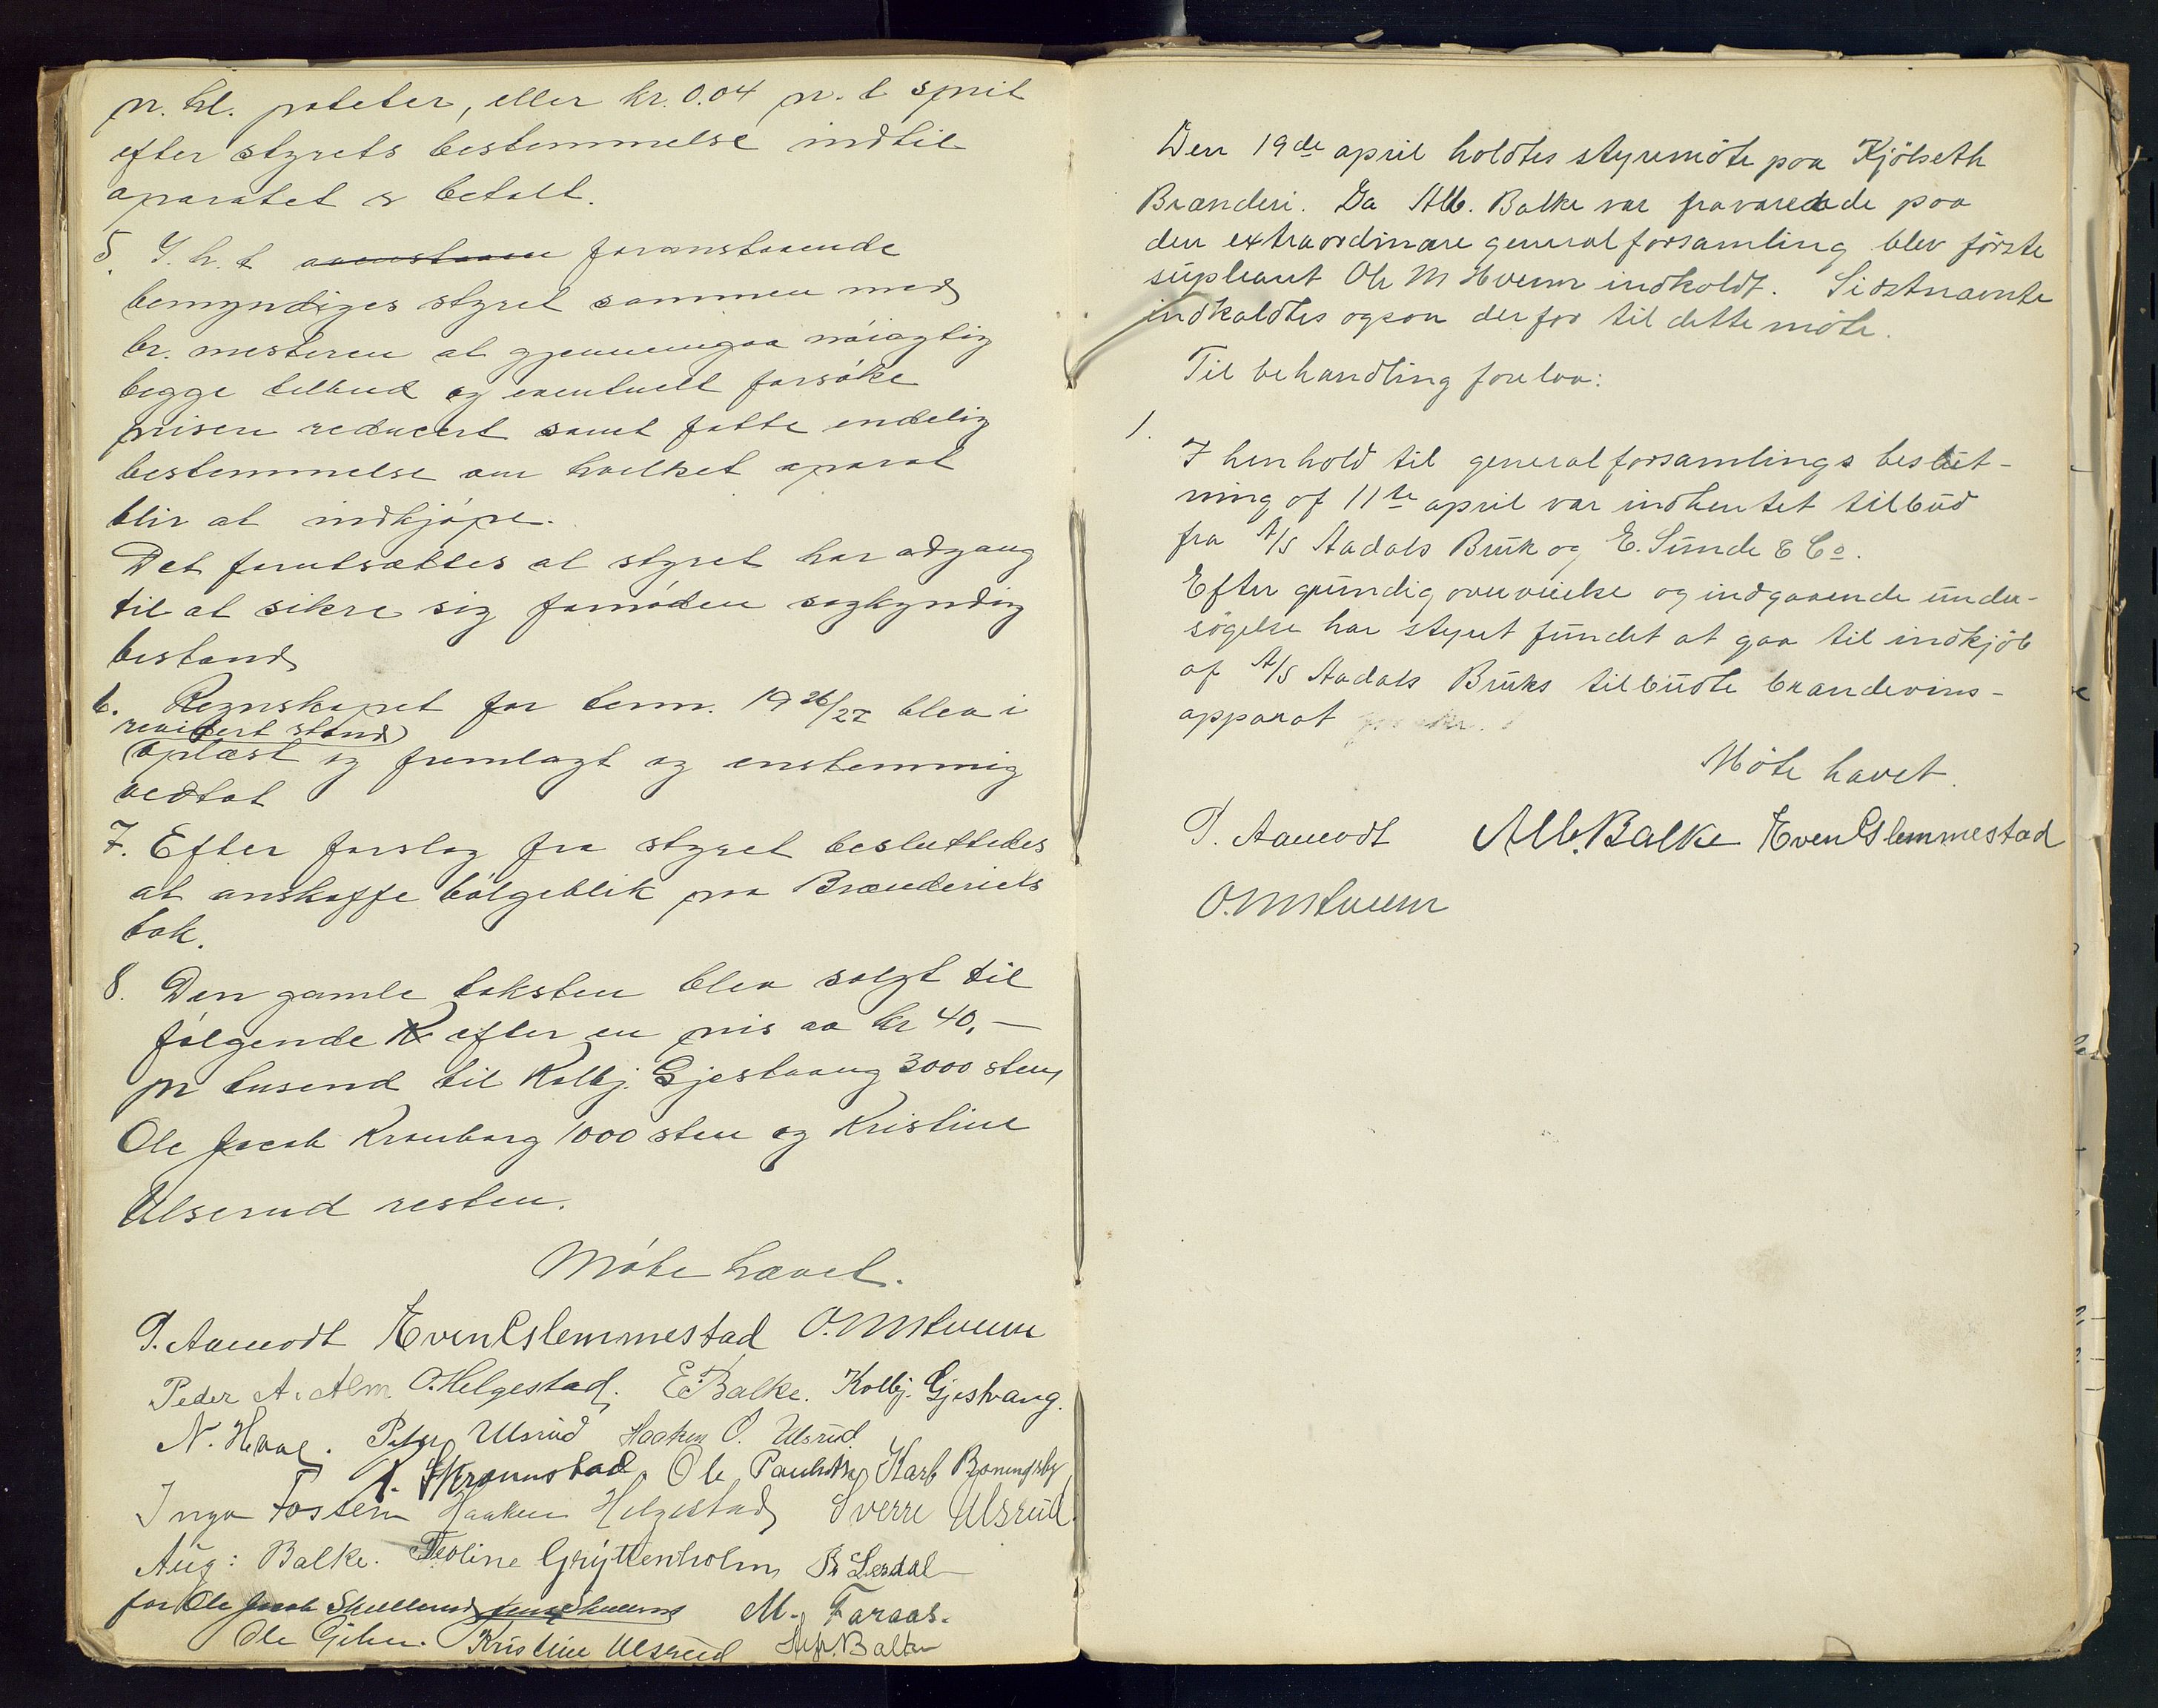 pr. hl. poteter, eller kr. 0.04 pr. l sprit
efter styrets bestemmelse indtil
aparatet er betalt.
5. I. h. t. foranstaaende
bemyndiges styret sammen med
br. mesteren at gjennemgaa nöiagtig
begge tilbud og eventuelt forsöke
prisen reducert samt fatte endelig
bestemmelse om hvilket aparat
blir at indkjöpe.
Det forutsættes at styret har adgang
til at sikre sig fornöden sagkyndig
bistand
6. Regnskapet for term. 1926/27 blev i
revidert stand
oplæst og fremlagt og enstemmig
vedtat
7. Efter forslag fra styret besluttedes
at anskaffe bölgeblik paa Brænderiets
tak.
8. Den gamle taksten blev solgt til
fölgende efter en pris av kr 40,—
pr tusend til Kolbj. Gjestvang 3000 sten,
Ole Jacob Kronborg 1000 sten og Kristine
Ulserud resten.
Möte hævet.
P. Aamodt Even Elslemmestad O.M. Hveem
Peder A. Alm. O. Helgestad. E. Balke. Kolbj. Gjestvang.
N. Hval. Peter Ulsrud Haaken O. Ulsrud.
Kronnstad, Ole Karl
Inga Fosten Haaken Helgestad Sverre Ulsrud.
Aug: Balke. Teoline Gryttenholm B Lerdal
for Ole Jacob M. Faraas.
Ole Kristine Ulsrud Balke
Den 19de april holdtes styremöte paa Kjölseth
Brænderi. Da Alb. Balke var fraværende paa
den extraordinære generalforsamling blev förste
supleant Ole M Hveem indkaldt. Sidstnævnte
indkaldtes ogsaa derfor til dette möte.
Til behandling forelaa:
1.
I henhold til generalforsamlings beslut-
ning af 11te april var indhentet tilbud
fra A/S Aadals Bruk og E. Sunde & Co.
Efter grundig overveielse og indgaaende under-
sögelse har styret fundet at gaa til indkjöb
af A/S Aadals Bruks tilbudte brændevins-
apparat
Möte hævet.
P. Aamodt Alb. Balke Even Elslemmestad
O.M. Hveem